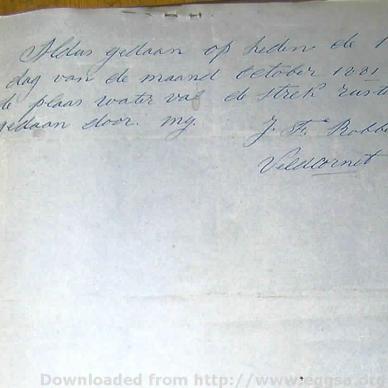 Aldus gedaan op heden de 1
dag van de maand October 1881
de plaas water val de strek ruste
gedaan door. my.
J. F. Robbe
Veldcornet
Downloaded from http://www.eggsa.org